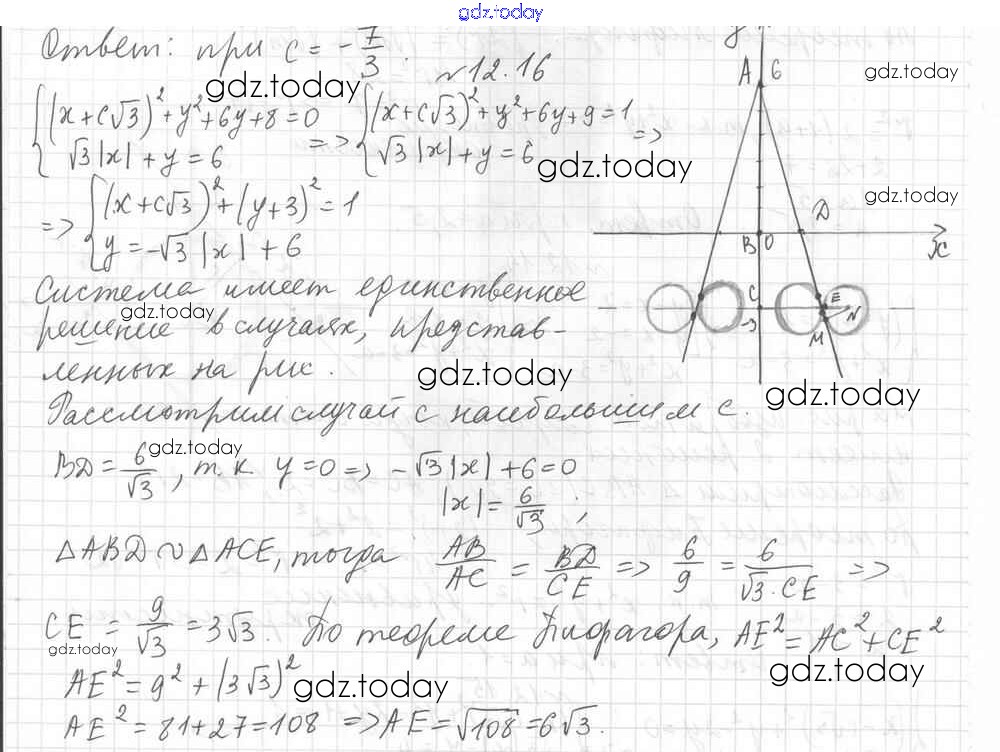 gdz.today
Ответ: при c = -7/3.
gdz.today
№12.16
{(x+c√3)²+y²+6y+8=0 => {(x+c√3)²+y²+6y+9=1 =>
{√3|x|+y=6 {√3|x|+y=6
gdz.today
=> {(x+c√3)²+(y+3)²=1
{y=-√3|x|+6
Система имеет единственное
gdz.today
решение в случаях, представ-
ленных на рис.
gdz.today
Рассмотрим случай с наибольшим c.
gdz.today
BD = 6/√3, т.к. y=0 => -√3|x|+6=0
|x| = 6/√3;
△ABD ∽ △ACE, тогда AB/AC = BD/CE => 6/9 = 6/(√3·CE) =>
CE = 9/√3 = 3√3. По теореме Пифагора, AE² = AC²+CE²
gdz.today
gdz.today
AE² = 9²+(3√3)²
gdz.today
AE² = 81+27=108 => AE=√108=6√3.
y
A 6
gdz.today
gdz.today
D
B 0
x
C E
-3 N
M
gdz.today